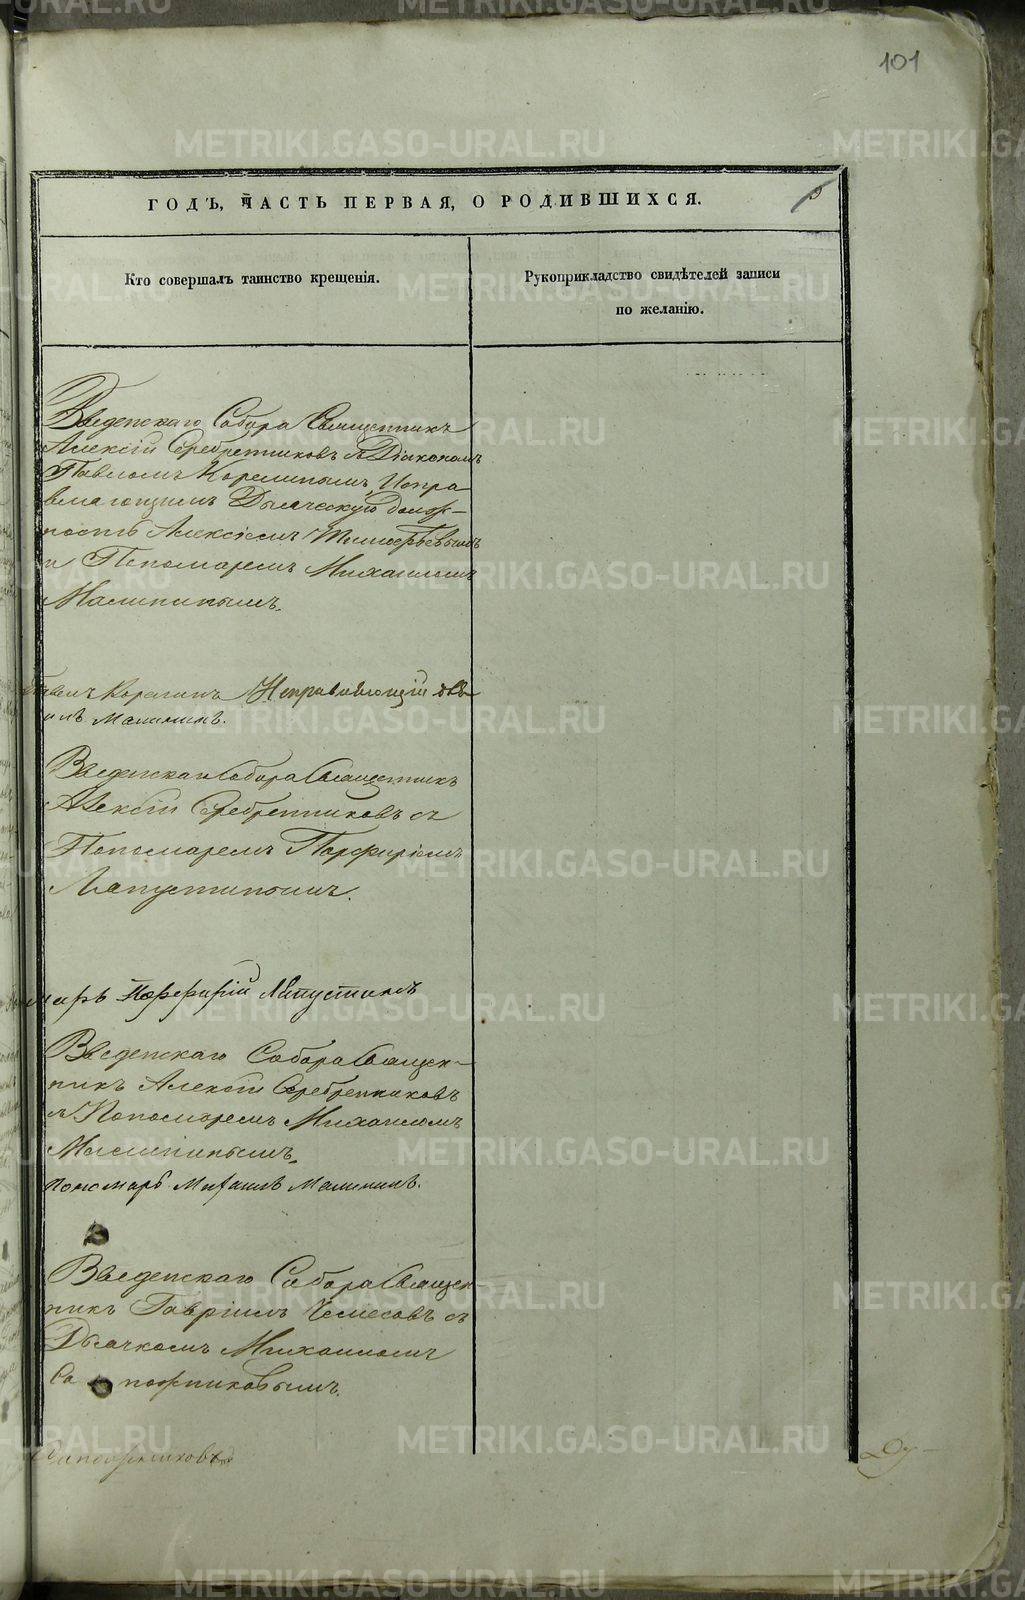 101
ГОДЪ, ЧАСТЬ ПЕРВАЯ, О РОДИВШИХСЯ.
Кто совершалъ таинство крещенія.
Рукоприкладство свидѣтелей записи
по желанію.
Введенскаго Собора Священникъ
Алексій Серебренниковъ съ Діакономъ
Павломъ Корелинымъ, Испра-
вляющимъ Дьяческую долж-
ность Алексіемъ
и Пономаремъ Михаиломъ
Малининымъ.
Исправляющій
Малининъ.
Введенскаго Собора Священникъ
Алексій Серебренниковъ съ
Пономаремъ Порфиріемъ
Лапустинымъ.
марь Порфирій Лапустинъ
Введенскаго Собора Священ-
никъ Алексій Серебренниковъ
съ Пономаремъ Михаиломъ
Малининымъ.
пономарь Михаилъ Малининъ.
Введенскаго Собора Священ-
никъ Гавріилъ Чемесовъ съ
Дьячкомъ Михаиломъ
Сапожниковымъ.
Сапожниковъ
METRIKI.GASO-URAL.RU